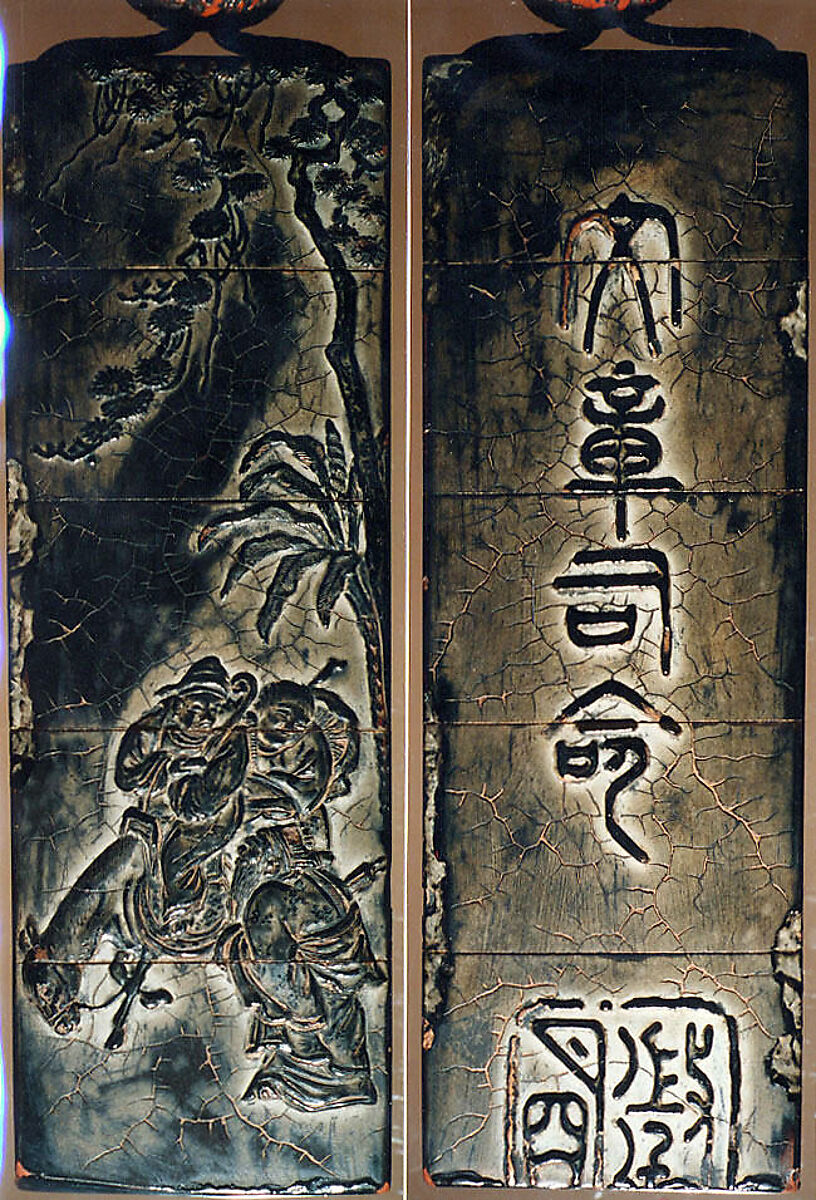 文章司命